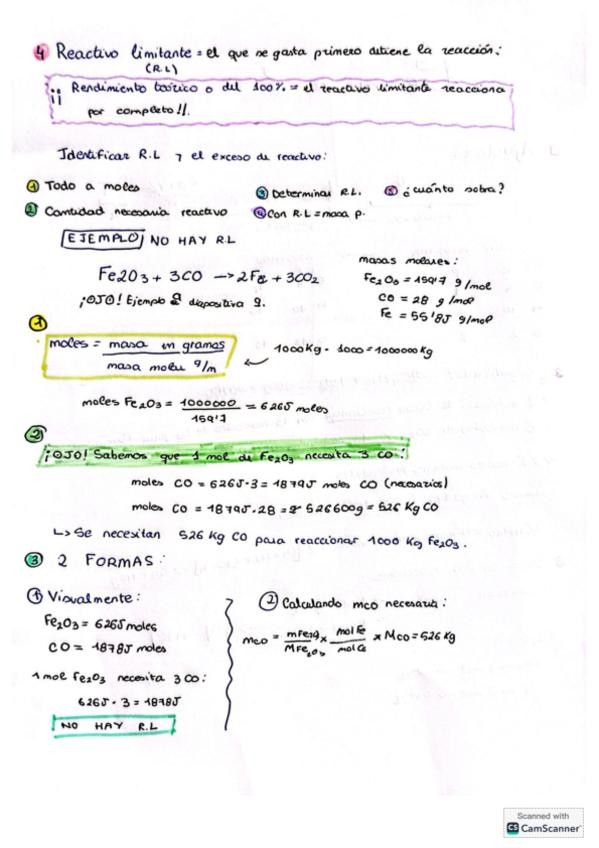 4 Reactivo limitante = el que se gasta primero detiene la reacción:
(R.L)
¡¡ Rendimiento teórico o del 100% = el reactivo limitante reacciona
por completo!!.
Identificar R.L y el exceso de reactivo:
① Todo a moles
③ Determinar R.L.
⑤ ¿cuánto sobra?
② Cantidad necesaria reactivo
④ Con R.L = masa p.
EJEMPLO NO HAY R.L
masas molares:
Fe2O3 + 3CO → 2Fe + 3CO2
Fe2O3 = 159'7 g/mol
CO = 28 g/mol
Fe = 55'85 g/mol
¡OJO! Ejemplo 2 diapositiva 9.
①
moles = masa en gramos / masa molar g/m
1000Kg · 1000 = 1000000 Kg
moles Fe2O3 = 1000000 / 159'7 = 6265 moles
②
¡OJO! Sabemos que 1 mol de Fe2O3 necesita 3 CO:
moles CO = 6265 · 3 = 18795 moles CO (necesarios)
moles CO = 18795 · 28 = 526600g = 526 Kg CO
↳ Se necesitan 526 Kg CO para reaccionar 1000 Kg Fe2O3.
③ 2 FORMAS:
① Visualmente:
Fe2O3 = 6265 moles
CO = 18785 moles
1 mol Fe2O3 necesita 3 CO:
6265 · 3 = 18785
NO HAY R.L
② Calculando mco necesaria:
mco = mFe2O3 / MFe2O3 x mol Fe / mol Co x Mco = 526 Kg
Scanned with
CS CamScanner